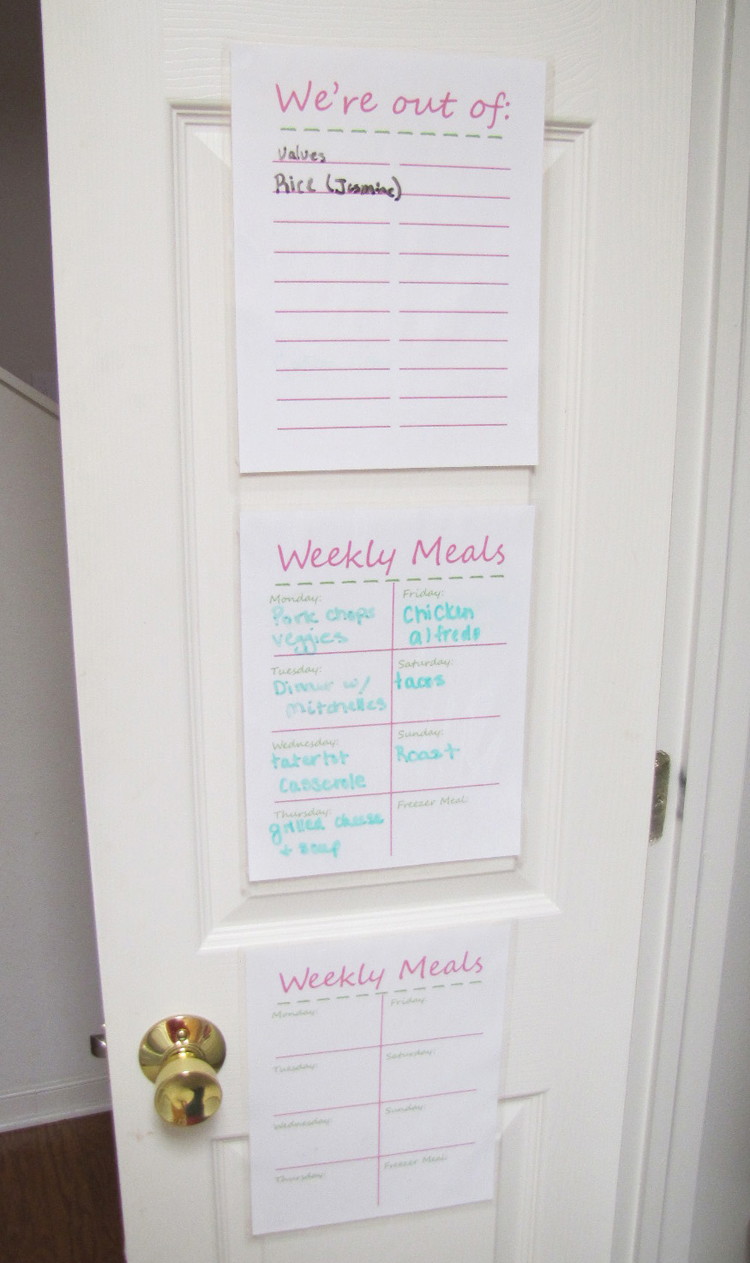 We're out of:
Values
Rice (Jasmine)
Weekly Meals
Monday:
Pork chops
veggies
Tuesday:
Dinner w/
mitchelles
Wednesday:
tatertot
Casserole
Thursday:
grilled cheese
+ soup
Friday:
Chicken
alfredo
Saturday:
tacos
Sunday:
Roast
Freezer Meal:
Weekly Meals
Monday:
Tuesday:
Wednesday:
Thursday:
Friday:
Saturday:
Sunday:
Freezer Meal: